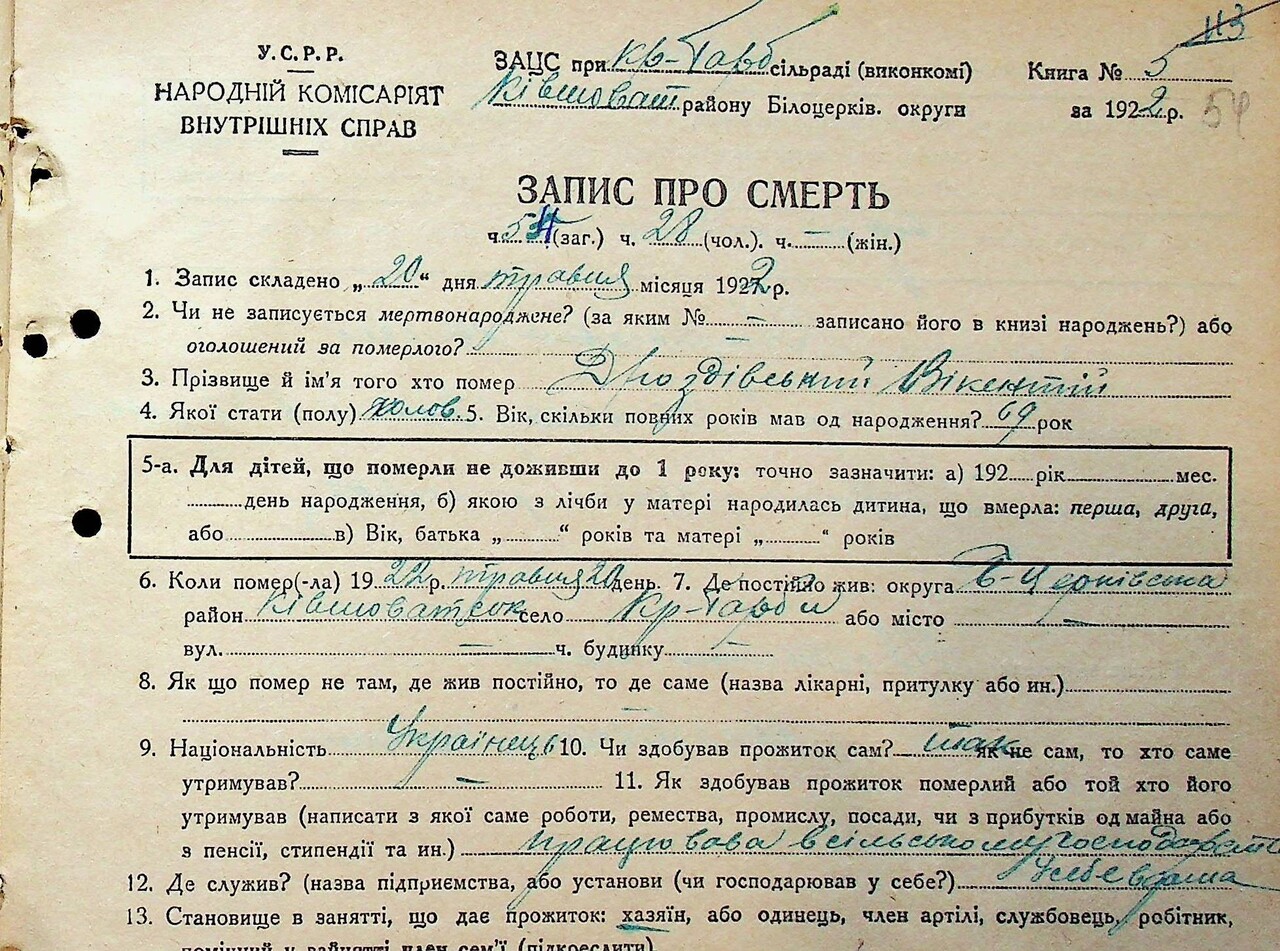 113
У.С.Р.Р.
НАРОДНІЙ КОМІСАРІЯТ
ВНУТРІШНІХ СПРАВ
ЗАЦС при Кр-Гарб сільраді (виконкомі)
Ківшоват. району Білоцерків. округи
Книга № 5
за 1922 р. 54
ЗАПИС ПРО СМЕРТЬ
ч. 54 (заг.) ч. 28 (чол.). ч. — (жін.)
1. Запис складено „20“ дня травня місяця 1922 р.
2. Чи не записується мертвонароджене? (за яким № — записано його в книзі народжень?) або
оголошений за померлого? —
3. Прізвище й ім'я того хто помер Дроздівський Вікентій
4. Якої стати (полу) холов. 5. Вік, скільки повних років мав од народження? 69 рок
5-а. Для дітей, що померли не доживши до 1 року: точно зазначити: а) 192 рік мес.
день народження, б) якою з лічби у матері народилась дитина, що вмерла: перша, друга,
або в) Вік, батька „ “ років та матері „ “ років
6. Коли помер(-ла) 1922 р. травня 20 день. 7. Де постійно жив: округа Б-Церківська
район Ківшоватськ село Кр-Гарби або місто —
вул. — ч. будинку —
8. Як що помер не там, де жив постійно, то де саме (назва лікарні, притулку або ин.)
9. Національність Українець 10. Чи здобував прожиток сам? так як не сам, то хто саме
утримував? — 11. Як здобував прожиток померлий або той хто його
утримував (написати з якої саме роботи, ремества, промислу, посади, чи з прибутків од майна або
з пенсії, стипендії та ин.) працював в сільському господарстві
12. Де служив? (назва підприємства, або установи (чи господарював у себе?) У себе вдома
13. Становище в занятті, що дає прожиток: хазяїн, або одинець, член артілі, службовець, робітник,
помічний у занятті член сем'ї (підкреслити)